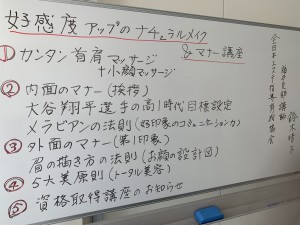 好感度アップのナチュラルメイク
&マナー講座
① カンタン首肩マッサージ
+小顔マッサージ
② 内面のマナー(挨拶)
大谷翔平選手の高1時代目標設定
メラビアンの法則(好印象のコミュニケーション力)
③ 外面のマナー(第1印象)
眉の描き方の法則(お顔の設計図)
④ 5大美原則(トータル美容)
⑤ 資格取得講座のお知らせ